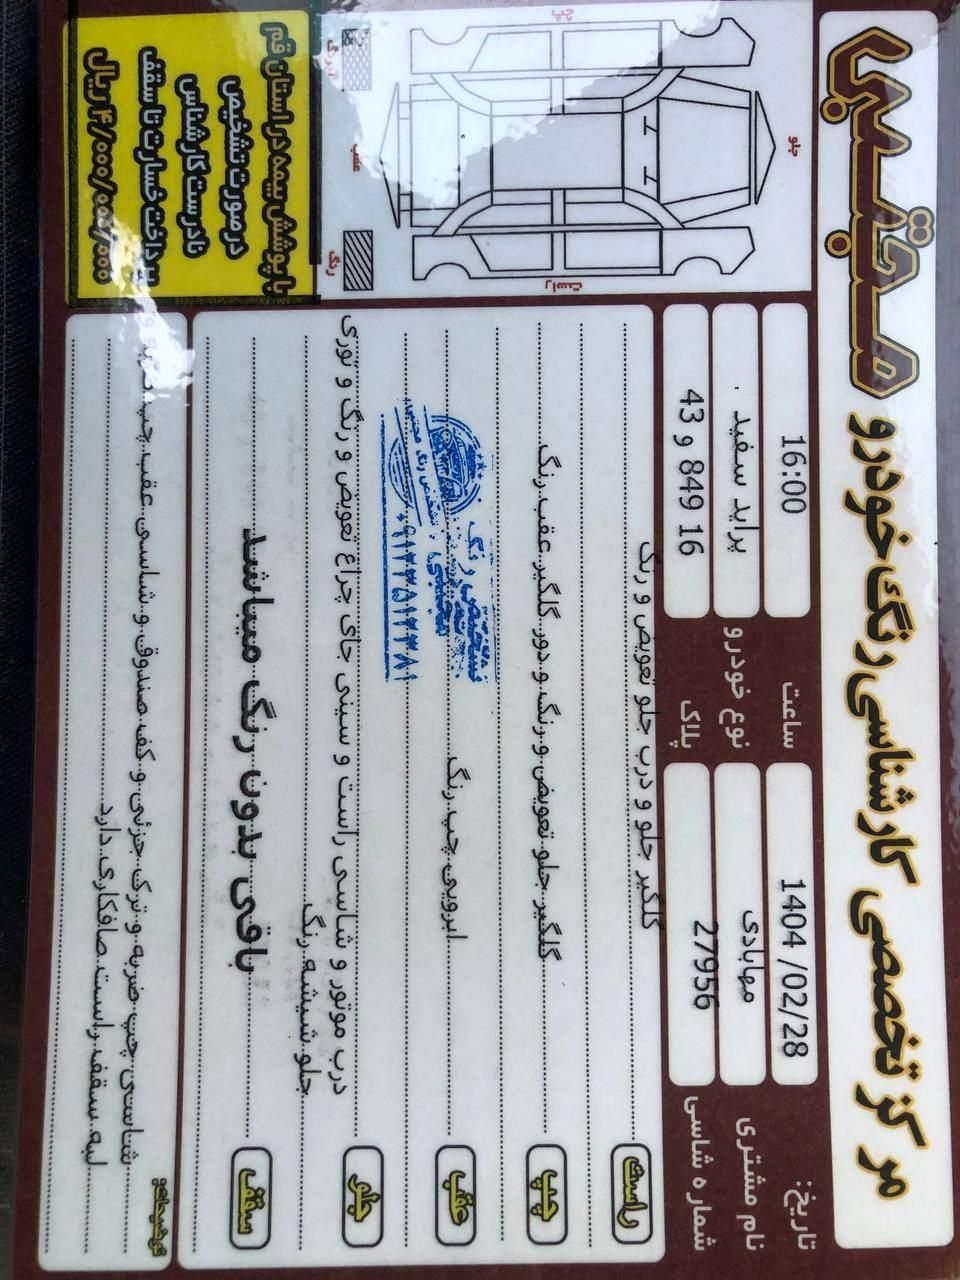 مرکز تخصصی کارشناسی رنگ خودرو مجتبی
تاریخ: 1404 /02/28
ساعت 16:00
نام مشتری مهابادی
نوع خودرو پراید سفید
شماره شاسی 27956
پلاک 43 و 849 16
جلو
عقب
چپ
راست
رنگ
با پوشش بیمه در استان قم
در صورت تشخیص
نادرست کارشناس
پرداخت خسارت تا سقف
ریال
راست
گلگیر جلو و درب جلو تعویض و رنگ
چپ
گلگیر جلو تعویض و رنگ و دور گلگیر عقب رنگ
عقب
ابرویی چپ رنگ
جلو
درب موتور و شاسی راست و سینی جای چراغ تعویض و رنگ و توری
جلو شیشه رنگ
سقف
باقی بدون رنگ میباشد
تشخیص رنگ
مجتبی
توضیحات:
شاسی چپ ضربه و ترک جزئی و کف صندوق و شاسی عقب چپ ضربه و
لبه سقف راست صافکاری دارد